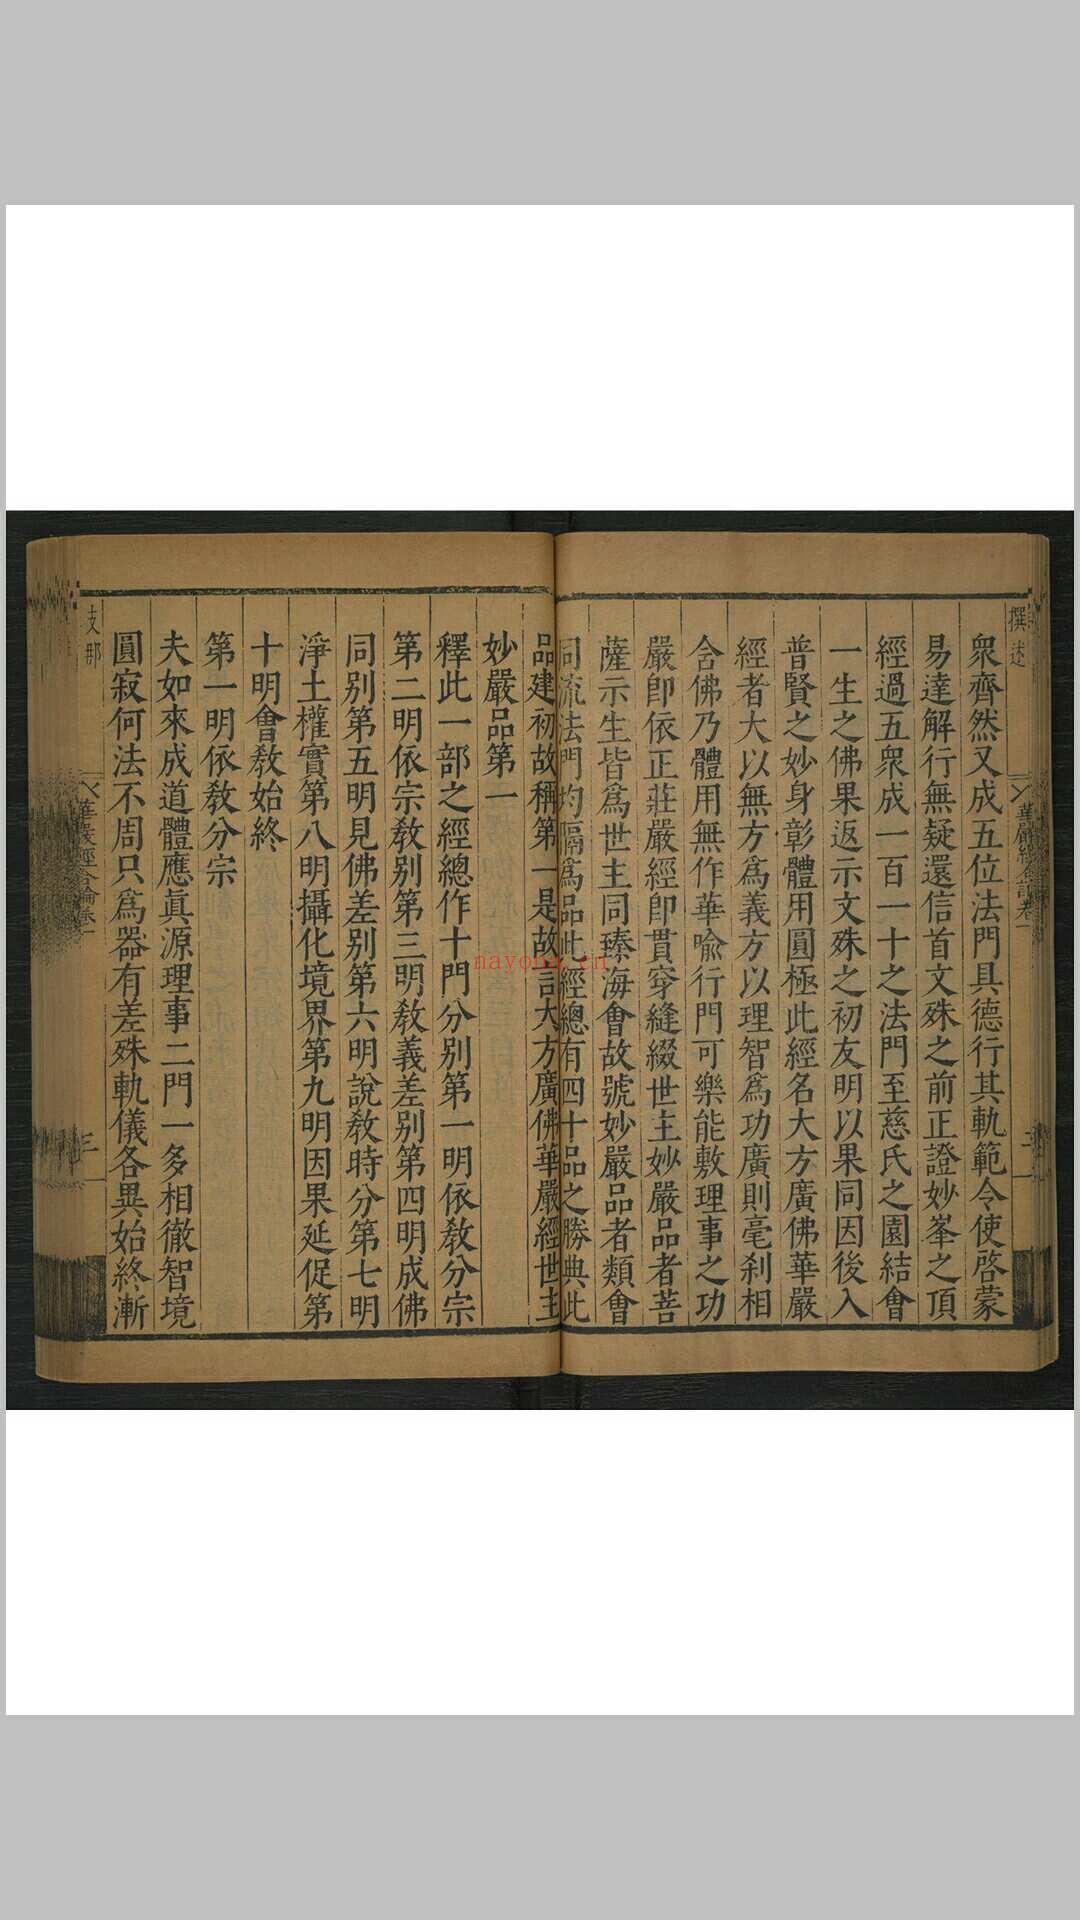 撰述
華嚴經合論卷一
二
衆齊然又成五位法門具德行其軌範令使啓蒙
易達解行無疑還信首文殊之前正證妙峯之頂
經過五衆成一百一十之法門至慈氏之園結會
一生之佛果返示文殊之初友明以果同因後入
普賢之妙身彰體用圓極此經名大方廣佛華嚴
經者大以無方爲義方以理智爲功廣則毫刹相
含佛乃體用無作華喩行門可樂能敷理事之功
嚴卽依正莊嚴經卽貫穿縫綴世主妙嚴品者菩
薩示生皆爲世主同臻海會故號妙嚴品者類會
同流法門均隔爲品此經總有四十品之勝典此
品建初故稱第一是故言大方廣佛華嚴經世主
妙嚴品第一
釋此一部之經總作十門分别第一明依教分宗
第二明依宗教别第三明教義差别第四明成佛
同别第五明見佛差别第六明說教時分第七明
淨土權實第八明攝化境界第九明因果延促第
十明會教始終
第一明依教分宗
夫如來成道體應眞源理事二門一多相徹智境
圓寂何法不周只爲器有差殊軌儀各異始終漸
支那
華嚴經合論卷一
三
nayona.cn